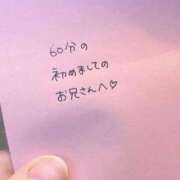 60分の
初めましての
お兄さんへ♡